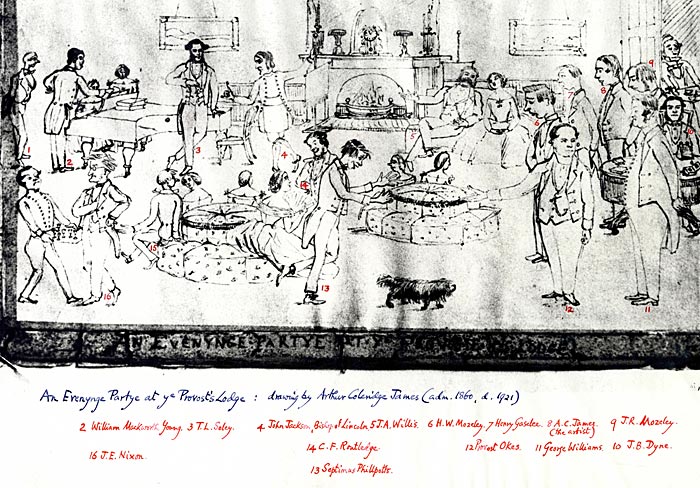 1
2
3
4
5
6
7
8
9
10
14
15
16
13
12
11
AN EVENYNGE PARTYE AT Yᵉ PROVOST'S LODGE
An Evenynge Partye at yᵉ Provost's Lodge : drawing by Arthur Coleridge James (adm. 1860, d. 1921)
2 William Mackworth Young. 3 T.L. Seley. 4 John Jackson, Bishop of Lincoln 5 J.A. Willis. 6 H.W. Mozeley. 7 Henry Goselee. 8 A.C. James. 9 J.R. Mozeley.
(the artist)
16 J.E. Nixon. 14 C.F. Routledge. 12 Provost Okes. 11 George Williams. 10 J.B. Dyne.
13 Septimus Phillpotts.